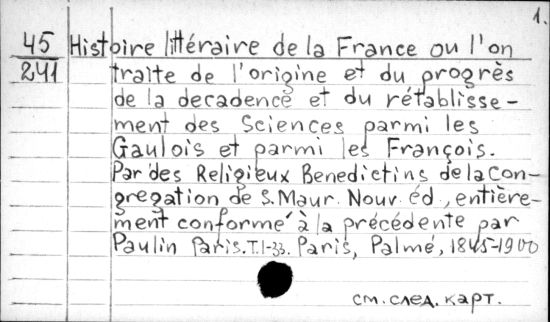 1.
45 Histoire littéraire de la France ou l'on
241 traite de l'origine et du progrès
de la decadence et du rétablisse-
ment des Sciences parmi les
Gaulois et parmi les François.
Par des Religieux Benedictins de la Con-
gregation de S. Maur. Nouv. éd, entière-
ment conforme à la précédente par
Paulin Paris. T. 1-33. Paris, Palmé, 1865-1900
см. след. карт.